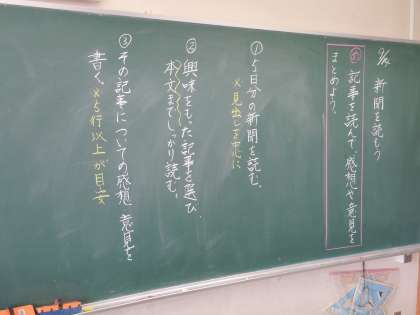 9/14 新聞を読もう
め 記事を読んで、感想や意見を
まとめよう。
① 5日分の新聞を読む。
※見出しを中心に
② 興味をもった記事を選び、
本文までしっかり読む。
③ その記事についての感想、意見を
書く。※5行以上が目安